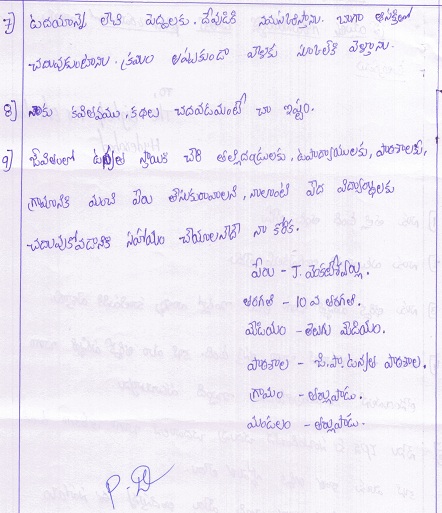 7) ఉదయాన్నే లేచి పెద్దలకు. దేవుడికి నమస్కరిస్తాను. బాగా ఆసక్తితో
చదువుకుంటాను. క్రమం తప్పకుండా పాఠశాలకు వెళ్తాను.
8) నాకు కవితలను, కథలు చదవడమంటే చా ఇష్టం.
9) జీవితంలో ఉన్నత స్థాయికి చేరి తల్లిదండ్రులకు, ఉపాధ్యాయులకు, పాఠశాలకు,
గ్రామానికి మంచి పేరు తీసుకురావాలని, నాలాంటి పేద విద్యార్థులకు
చదువుకోవడానికి సహాయం చేయాలనేదే నా కోరిక.
పేరు - J. వెంకటేశ్వర్లు.
తరగతి - 10 వ తరగతి.
మీడియం - తెలుగు మీడియం.
పాఠశాల - జి.పా.ఉన్నత పాఠశాల.
గ్రామం - తర్లుపాడు.
మండలం - తర్లుపాడు.